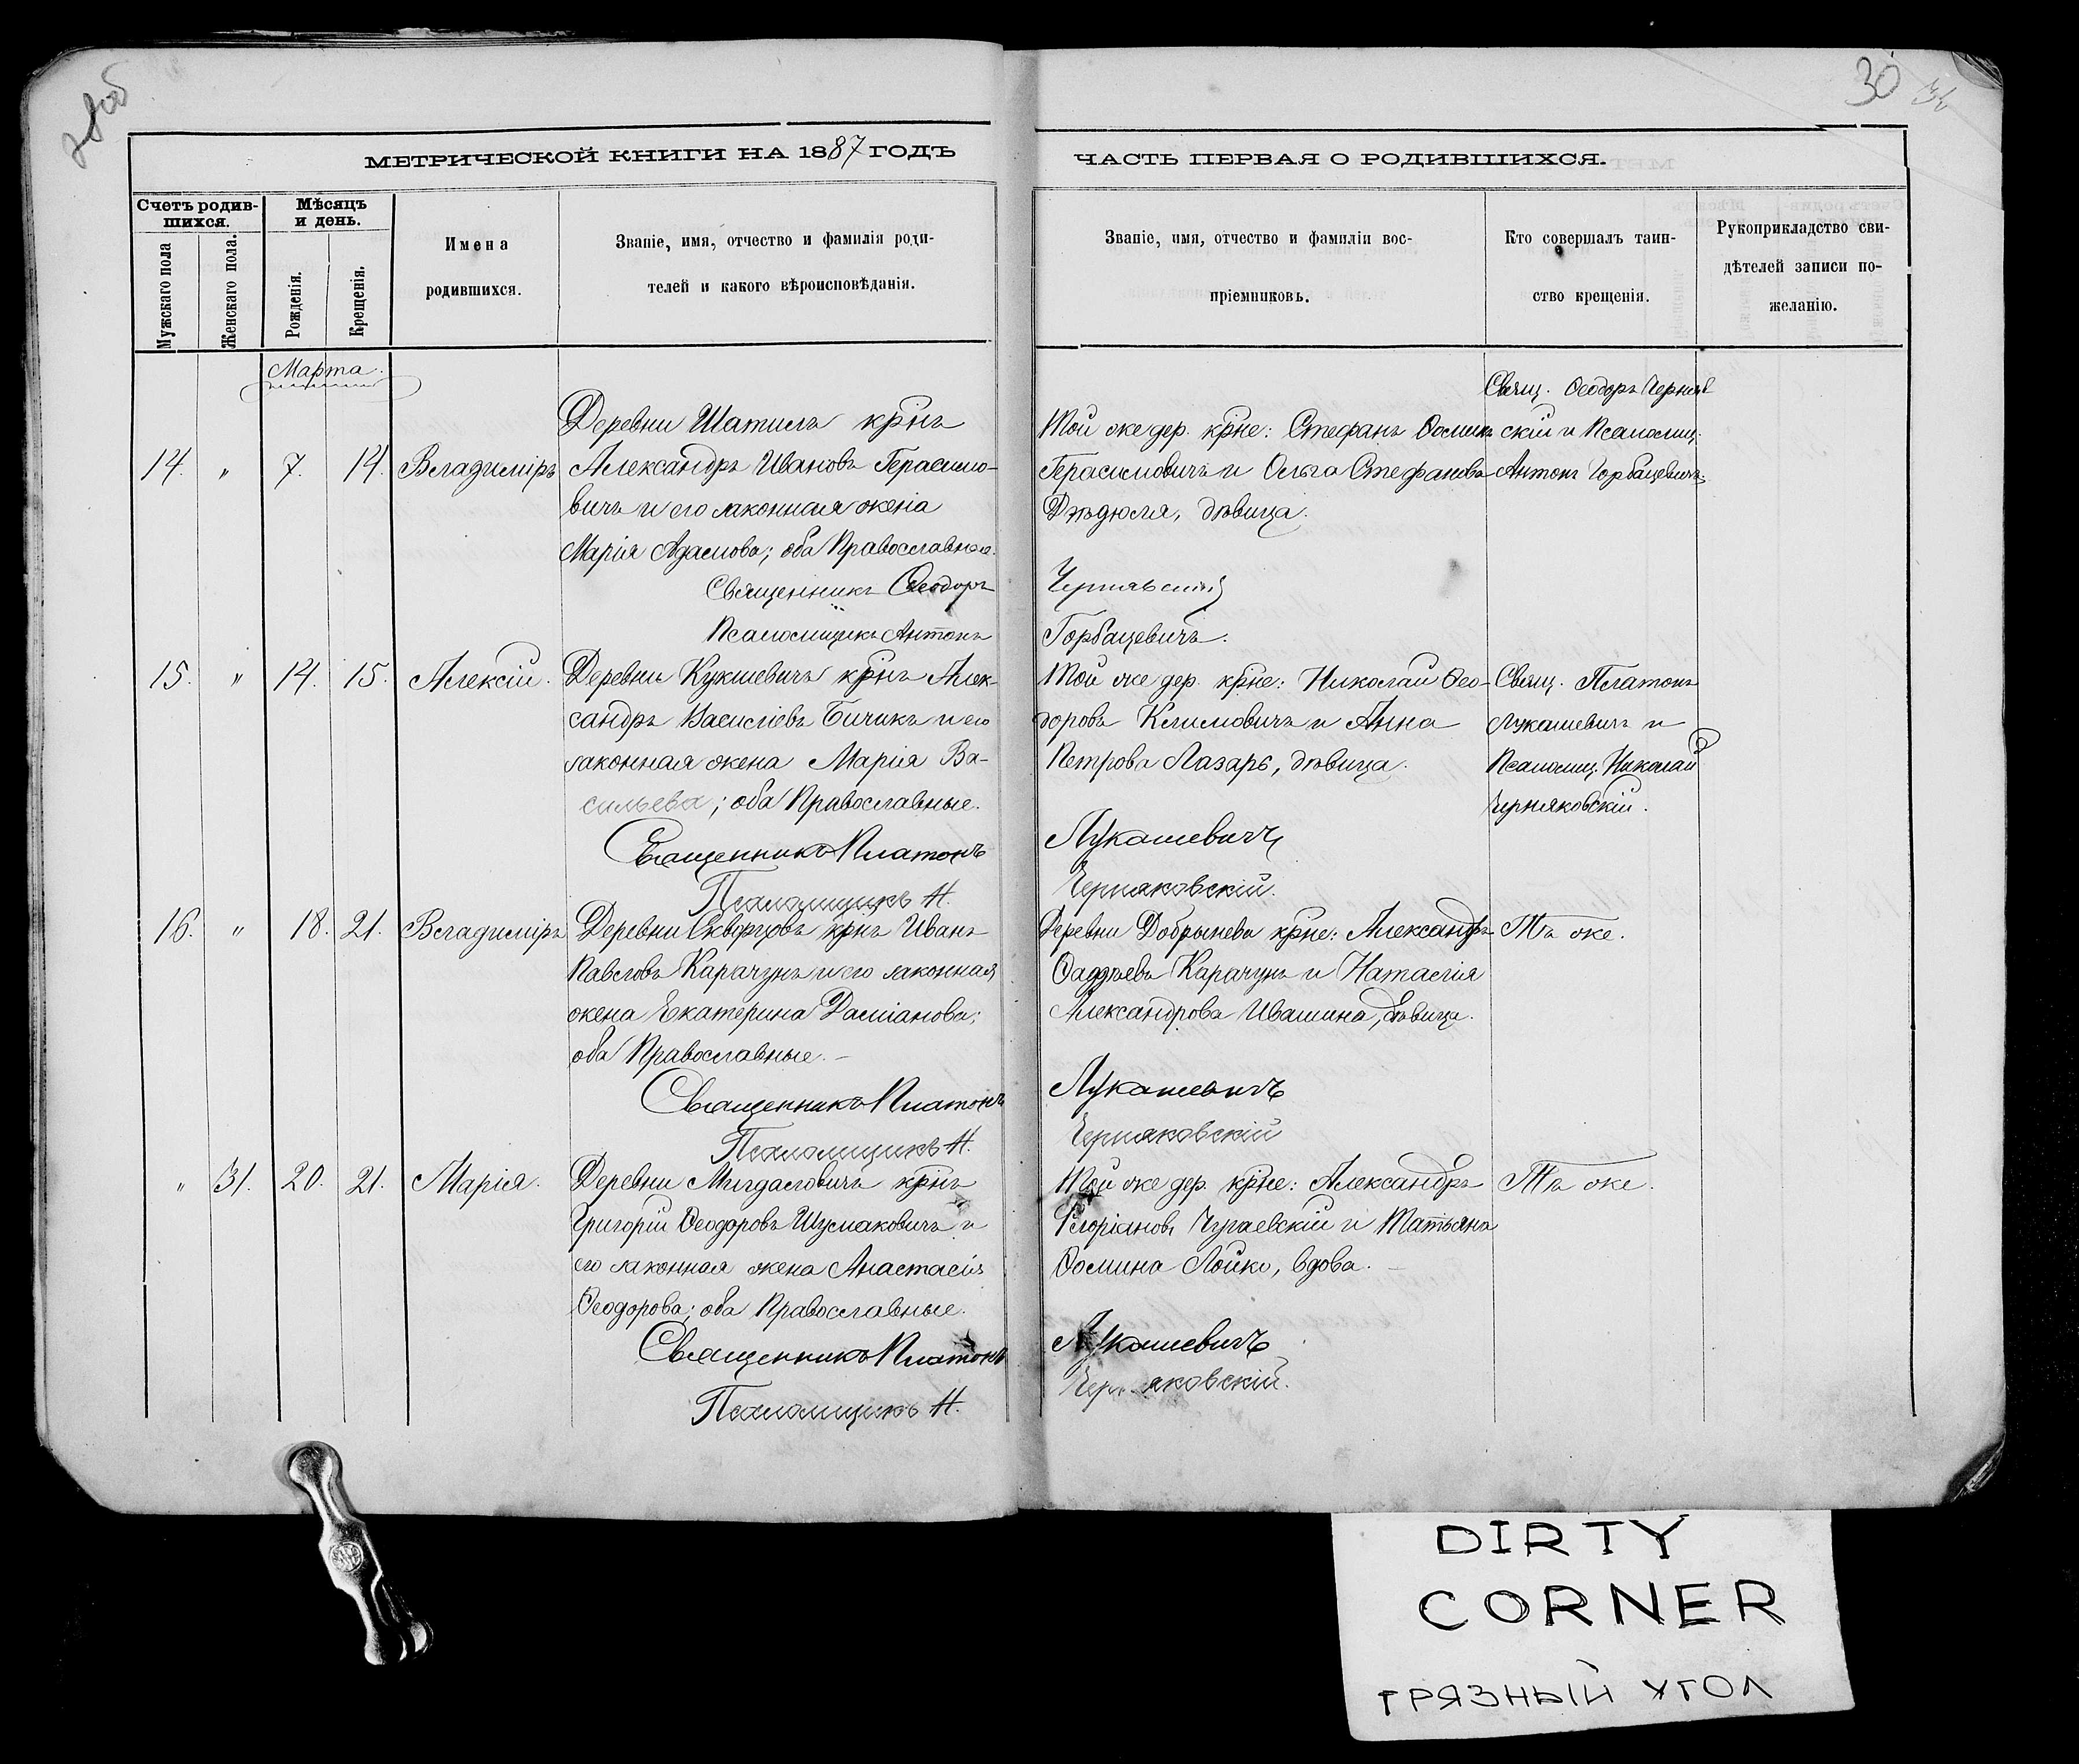 30
МЕТРИЧЕСКОЙ КНИГИ НА 1887 ГОДЪ
ЧАСТЬ ПЕРВАЯ О РОДИВШИХСЯ.
Счетъ родив-
шихся.
Мужскаго пола
Женскаго пола.
Мѣсяцъ
и день.
Рожденія.
Крещенія.
Имена
родившихся.
Званіе, имя, отчество и фамилія роди-
телей и какого вѣроисповѣданія.
Званіе, имя, отчество и фамиліи вос-
пріемниковъ.
Кто совершалъ таин-
ство крещенія.
Рукоприкладство сви-
дѣтелей записи по-
желанію.
Марта.
14. „ 7. 14. Владиміръ
Деревни Шатилъ крнъ
Александръ Ивановъ Герасимо-
вичъ и его законная жена
Марія Адамова; оба Православные.
Священникъ Ѳеодоръ
Псаломщикъ Антонъ
Той же дер. крне: Стефанъ Ѳоминъ
Герасимовичъ и Ольга Стефанова
Дѣдюля, дѣвица.
Чернявскій
Горбацевичъ.
Свящ. Ѳеодоръ Черняв
скій и Псаломщ.
Антонъ Горбацевичъ.
15. „ 14. 15. Алексій.
Деревни Кукшевичъ крнъ Алек-
сандръ Василіевъ Бичикъ и его
законная жена Марія Ва-
сильева; оба Православные.
Священникъ Платонъ
Псаломщикъ Н.
Той же дер. крне: Николай Ѳео-
доровъ Климовичъ и Анна
Петрова Лазарь, дѣвица.
Лукашевичъ
Черняковскій.
Свящ. Платонъ
Лукашевичъ и
Псаломщ. Николай
Черняковскій.
16. „ 18. 21. Владиміръ
Деревни Скворцовъ крнъ Иванъ
Павловъ Карачунъ и его законная
жена Екатерина Даміанова;
оба Православные. –
Священникъ Платонъ
Псаломщикъ Н.
Деревни Добрынева крне: Александръ
Ѳаддѣевъ Карачунъ и Наталія
Александрова Ивашина, дѣвица.
Лукашевичъ
Черняковскій
Тѣ же.
„ 31. 20. 21. Марія.
Деревни Мигдаловичъ крнъ
Григорій Ѳеодоровъ Шумаковичъ и
его законная жена Анастасія
Ѳеодорова; оба Православные.
Священникъ Платонъ
Псаломщикъ Н.
Той же дер. крне: Александръ
Флоріановъ Чугаевскій и Татьяна
Ѳомина Лойко, вдова. –
Лукашевичъ
Черняковскій.
Тѣ же.
DIRTY
CORNER
ГРЯЗНЫЙ УГОЛ